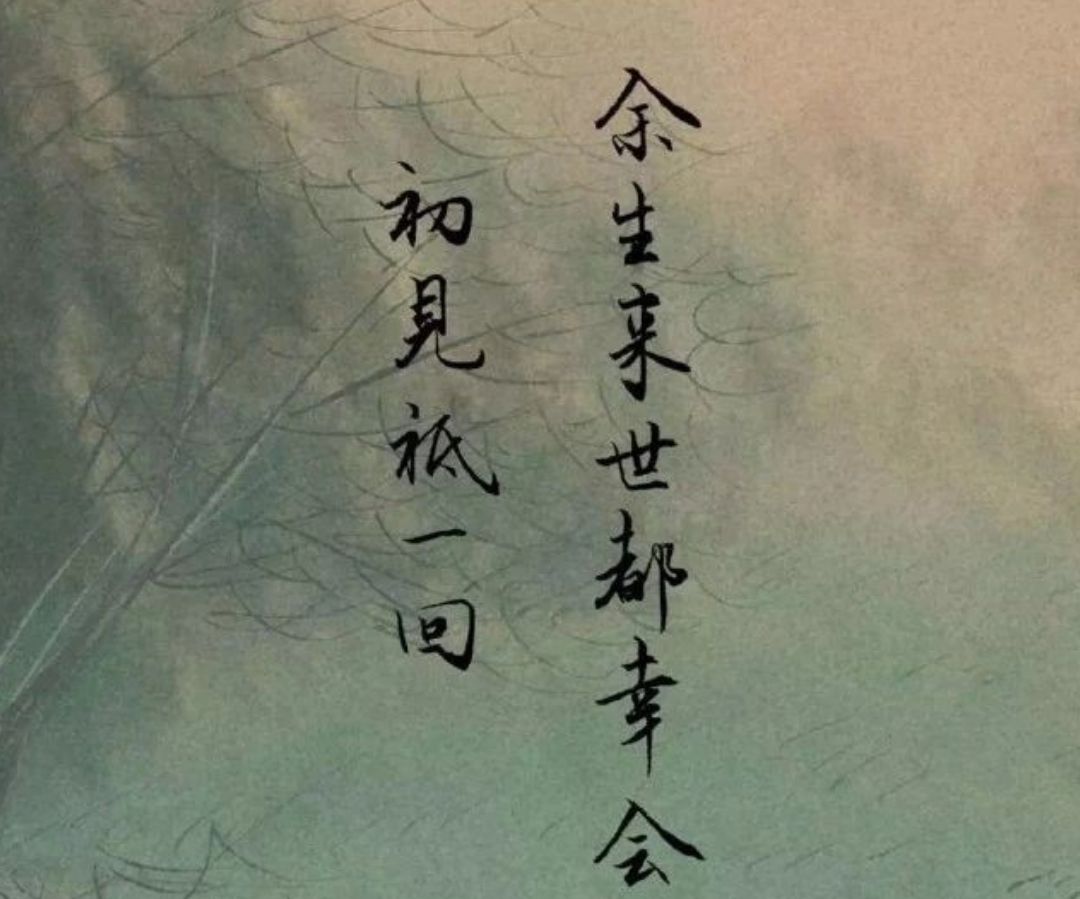 余生来世都幸会
初見祗一回